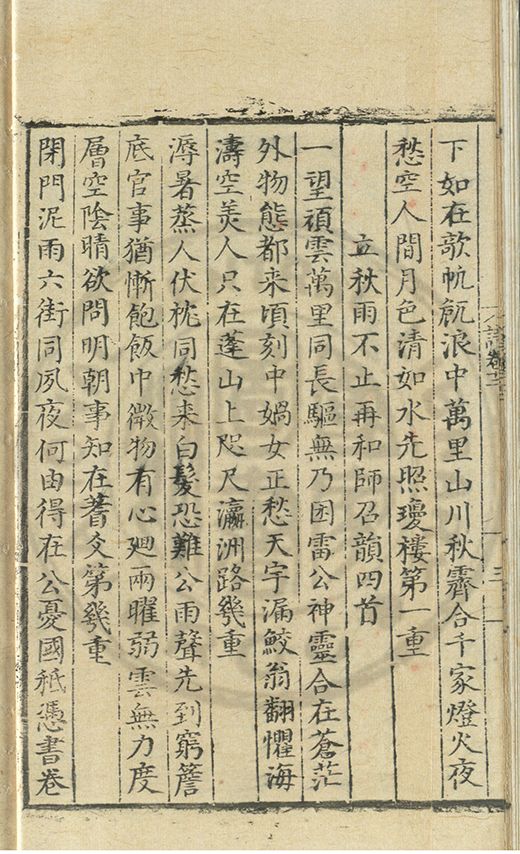 下如在歌帆䑺浪中萬里山川秋霽合千家燈火夜
愁空人間月色清如水先照瓊樓第一重
立秋雨不止再和師召韻四首
一望頑雲萬里同長驅無乃困雷公神靈合在蒼茫
外物態都來頃刻中媧女正愁天宇漏鮫翁翻懼海
濤空羙人只在蓬山上咫尺瀛洲路幾重
溽暑蒸人伏枕同愁来白髮恐難公雨聲先到窮簷
底官事猶慚飽飯中微物有心廻兩曜弱雲無力度
層空陰晴欲問明朝事知在蓍爻第幾重
閉門泥雨六街同夙夜何由得在公憂國秪憑書卷
三